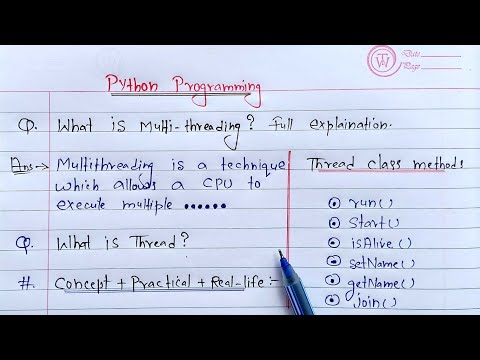 TW
Date
Page
Python Programming
Q. What is Multi-threading? Full explaination.
Ans→ Multithreading is a technique
which allows a CPU to
execute multiple ......
Q. What is Thread?
#. Concept + Practical + Real-life :-
Thread class methods
run()
Start()
isAlive()
setName()
getName()
join()